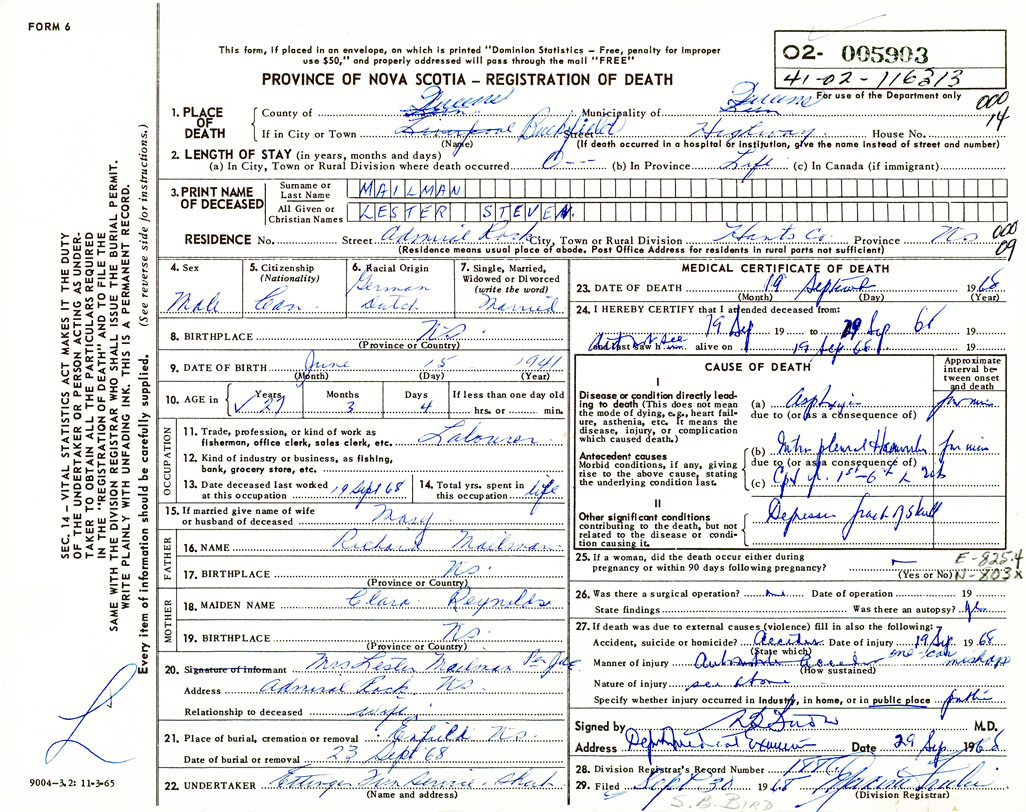 FORM 6
This form, if placed in an envelope, on which is printed "Dominion Statistics – Free, penalty for improper
use $50," and properly addressed will pass through the mail "FREE"
PROVINCE OF NOVA SCOTIA – REGISTRATION OF DEATH
02- 005903
41-02-116313
For use of the Department only
000
14
1. PLACE OF DEATH
County of Queens Municipality of Queens
If in City or Town Liverpool Buckfield Street Highway House No.
(Name) (If death occurred in a hospital or institution, give the name instead of street and number)
2. LENGTH OF STAY (in years, months and days)
(a) In City, Town or Rural Division where death occurred 0 --- (b) In Province Life (c) In Canada (if immigrant)
3. PRINT NAME OF DECEASED
Surname or Last Name MAILMAN
All Given or Christian Names LESTER STEVEN.
RESIDENCE No. Street Admiral Rock City, Town or Rural Division Hants Co. Province NS
(Residence means usual place of abode. Post Office Address for residents in rural parts not sufficient)
000
09
4. Sex Male
5. Citizenship (Nationality) Can
6. Racial Origin German Dutch
7. Single, Married, Widowed or Divorced (write the word) Married
8. BIRTHPLACE NS.
(Province or Country)
9. DATE OF BIRTH June 15 1941
(Month) (Day) (Year)
10. AGE in Years 27 Months 3 Days 4 If less than one day old hrs. or min.
OCCUPATION
11. Trade, profession, or kind of work as fisherman, office clerk, sales clerk, etc. Labourer
12. Kind of industry or business, as fishing, bank, grocery store, etc.
13. Date deceased last worked at this occupation 19 Sept 68
14. Total yrs. spent in this occupation life
15. If married give name of wife or husband of deceased Mary
FATHER
16. NAME Richard Mailman
17. BIRTHPLACE NS.
(Province or Country)
MOTHER
18. MAIDEN NAME Clara Reynolds
19. BIRTHPLACE NS.
(Province or Country)
20. Signature of informant Mrs Lester Mailman Per
Address Admiral Rock NS.
Relationship to deceased wife
21. Place of burial, cremation or removal Enfield NS.
Date of burial or removal 23 Sept 68
22. UNDERTAKER Ettinger
(Name and address)
MEDICAL CERTIFICATE OF DEATH
23. DATE OF DEATH 19 September 1968
(Month) (Day) (Year)
24. I HEREBY CERTIFY that I attended deceased from:
19 Sep 19 to 29 Sep 68 19
and last saw h alive on 19 Sep 68 19
CAUSE OF DEATH
Approximate interval between onset and death
I
Disease or condition directly leading to death (This does not mean the mode of dying, e.g., heart failure, asthenia, etc. It means the disease, injury, or complication which caused death.)
(a)
due to (or as a consequence of)
Antecedent causes
Morbid conditions, if any, giving rise to the above cause, stating the underlying condition last.
(b)
due to (or as a consequence of)
(c) 1st-6th L
II
Other significant conditions contributing to the death, but not related to the disease or condition causing it.
of skull
25. If a woman, did the death occur either during pregnancy or within 90 days following pregnancy?
(Yes or No)
E-825.4
N-803X
26. Was there a surgical operation? Date of operation 19
State findings Was there an autopsy?
27. If death was due to external causes (violence) fill in also the following:
Accident, suicide or homicide? Accident Date of injury 19 Sep 1968
(State which)
Manner of injury Automobile accident one-car mishap
(How sustained)
Nature of injury see above
Specify whether injury occurred in industry, in home, or in public place public
Signed by M.D.
Address Dep Medical Examiner Date 29 Sep 1968
28. Division Registrar's Record Number
29. Filed Sept 30 1968
(Division Registrar)
S. B. BIRD
SEC. 14 – VITAL STATISTICS ACT MAKES IT THE DUTY
OF THE UNDERTAKER OR PERSON ACTING AS UNDER-
TAKER TO OBTAIN ALL THE PARTICULARS REQUIRED
IN THE "REGISTRATION OF DEATH" AND TO FILE THE
SAME WITH THE DIVISION REGISTRAR WHO SHALL ISSUE THE BURIAL PERMIT.
WRITE PLAINLY WITH UNFADING INK. THIS IS A PERMANENT RECORD.
Every item of information should be carefully supplied. (See reverse side for instructions.)
9004-3.2: 11-3-65